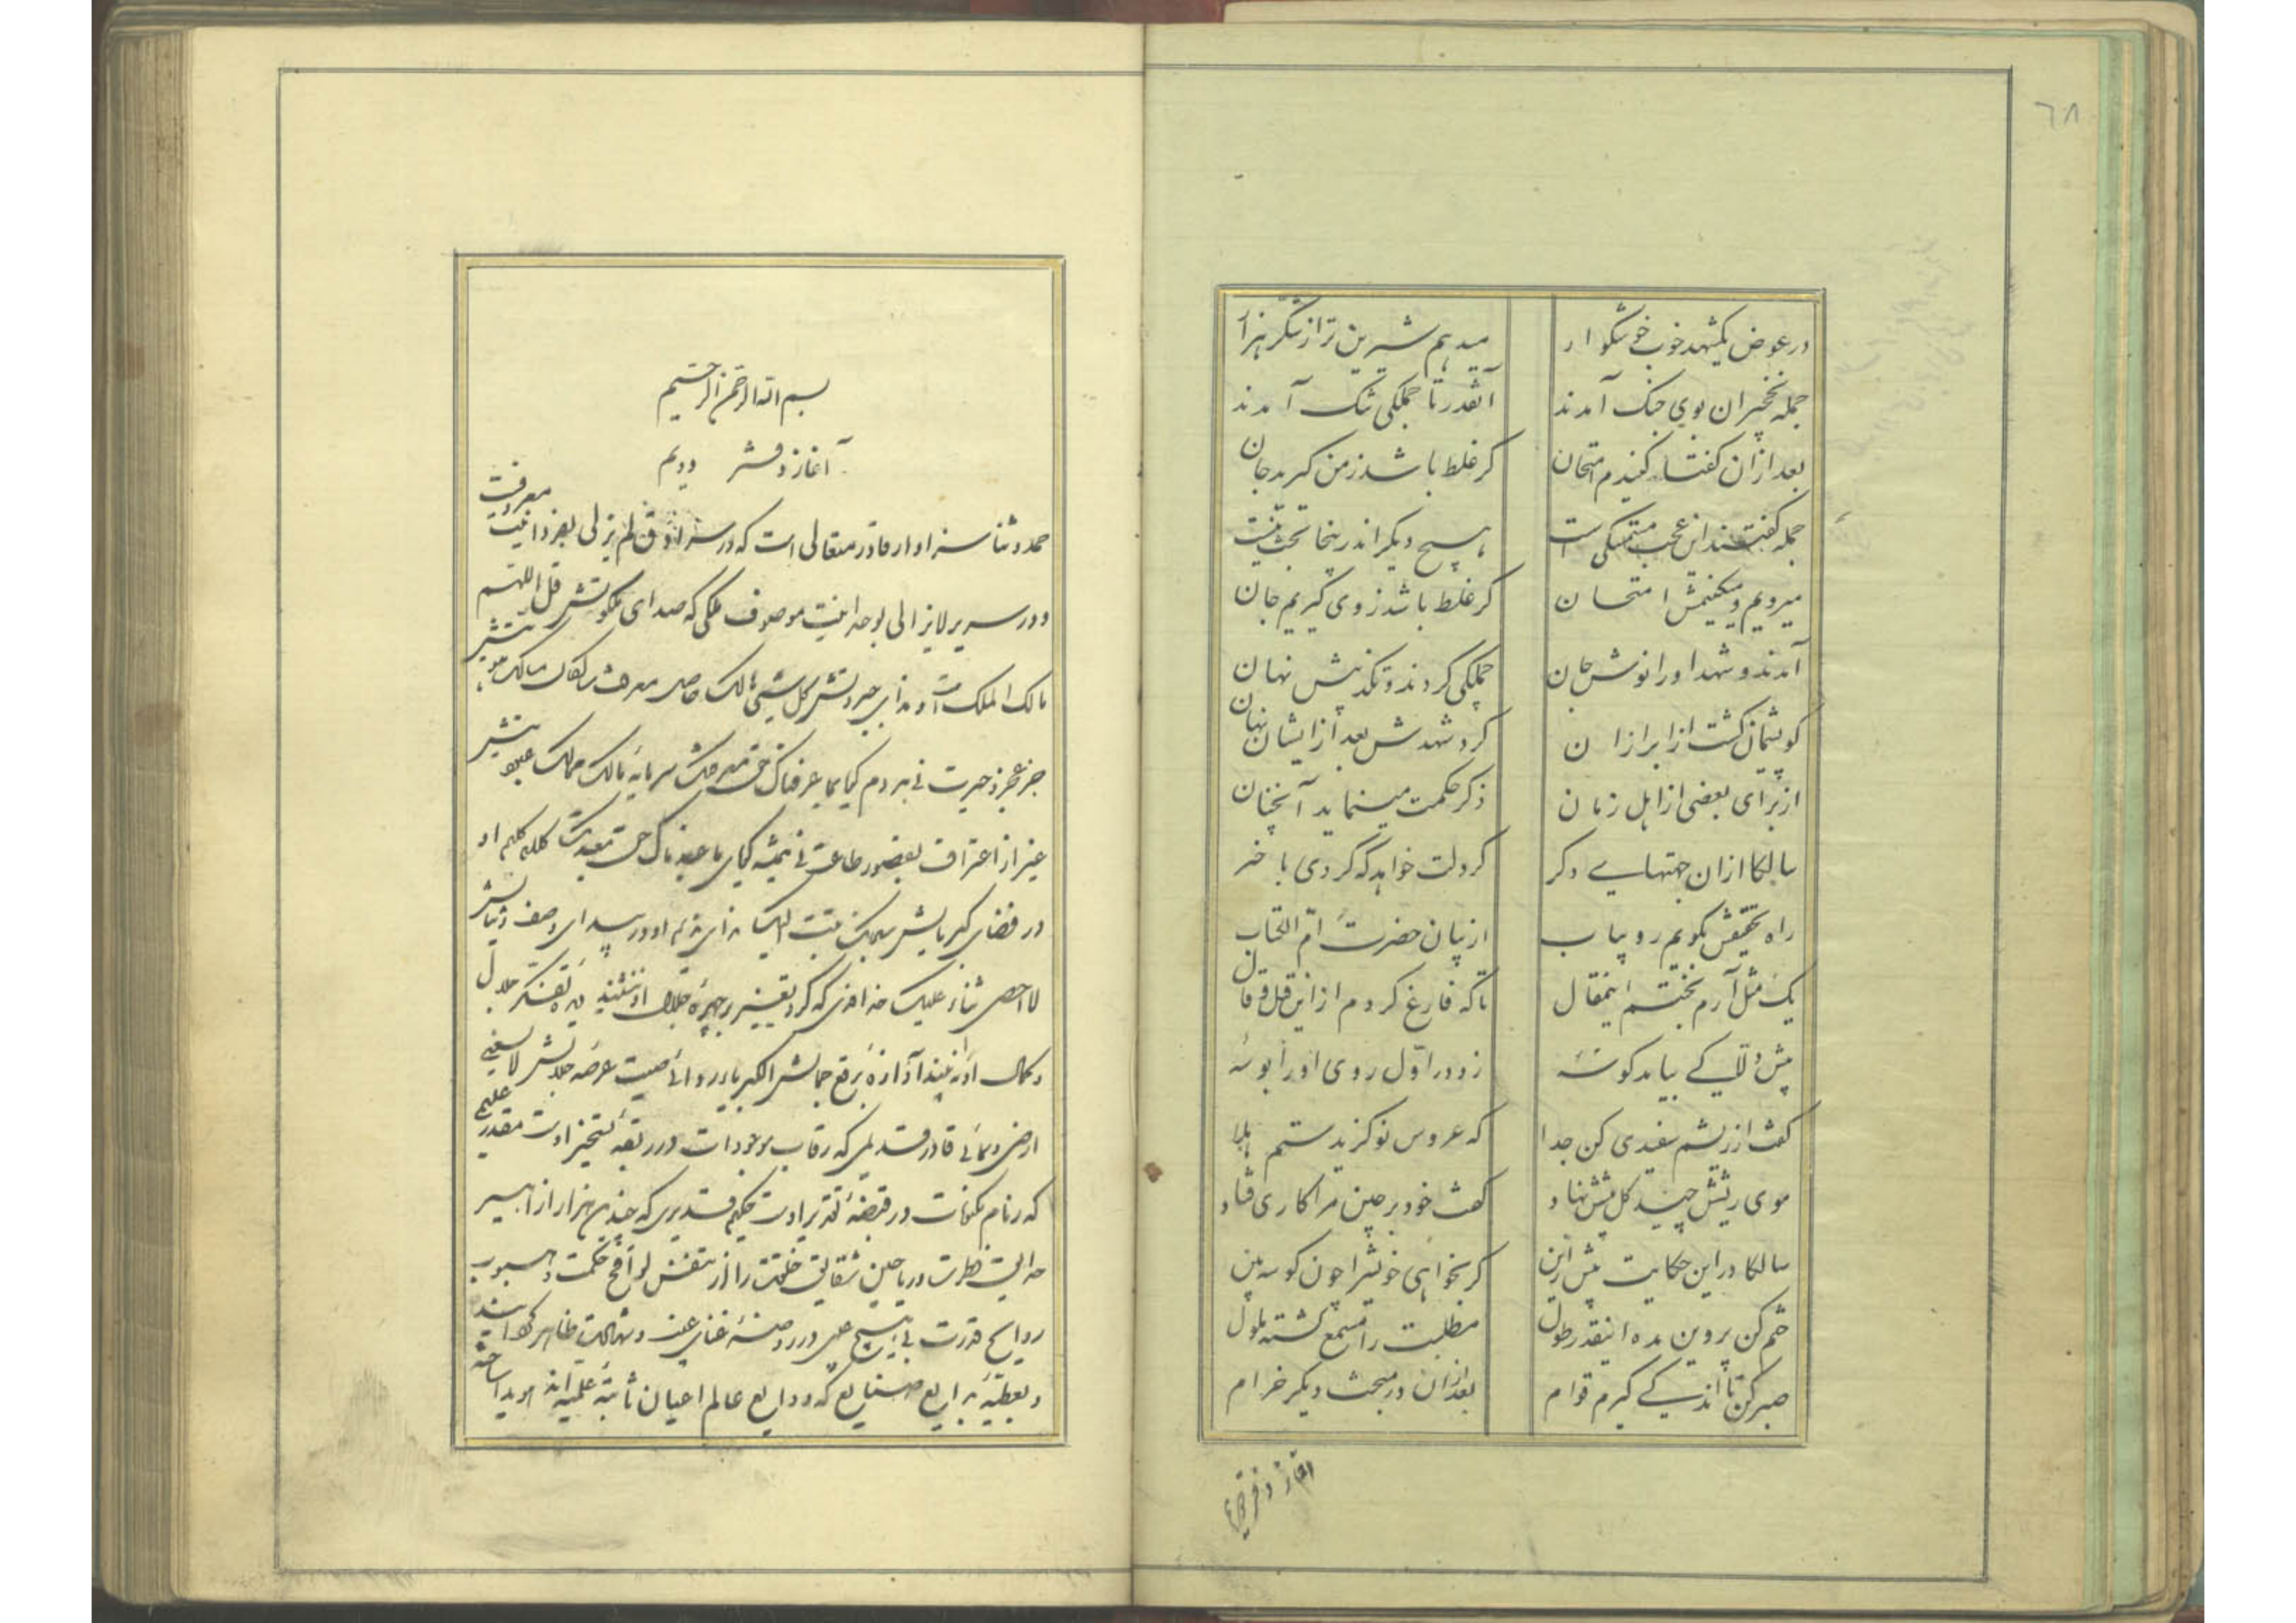 ٦٨
در عوض یکشهد خوب خوشکوار
میدهم شیرین تر از شکر هزار
جمله نخچیران بوی جنک آمدند
آنقدر تا جملکی تنک آمدند
بعد ازان کفتا کنیدم امتحان
کر غلط باشد ز من کیرید جان
جمله کفتند این عجب
هیچ دیکر اندرینجا بحث نیست
میرویم و میکنیمش امتحان
کر غلط باشد ز وی کیریم جان
آمدند و شهد او را نوش جان
جملکی کردند و نهان
کو پشیمان کشت از ابراز ان
کرد شهدش بعد از ایشان نهان
از برای بعضی از اهل زمان
ذکر حکمت مینماید آنچنان
سالکا ازان جهتهای دکر
کر دلت خواهد که کردی با خبر
راه تحقیقش بکویم رو بیاب
از بیان حضرت ام الکتاب
یک مثل آرم بختم اینمقال
تا که فارغ کردم از این قیل و قال
پیش دلاکی بیامد کوسه
زود در اول روی او را بوسه
کفت از ریشم سفیدی کن جدا
که عروس نو کزیدستم هلا
موی ریشش چید کل پیشش نهاد
کفت خود بر چین مرا کاری فتاد
سالکا در این حکایت پیش ازین
کر بخواهی خویش را چون کوسه بین
ختم کن پروین مده اینقدر طول
مطلبت را مستمع کشته ملول
صبر کن تا اندکی کیرم قوام
بعد ازان در مبحث دیکر خرام
آغاز دفتر
بسم الله الرحمن الرحیم
آغاز دفتر دویم
حمد و ثنا سزاوار قادر متعالی است که در لم یزلی بفردانیت معروفست
و در سریر لایزالی بوحدانیت موصوف ملکی که صدای ملکوتش قل اللهم
مالک الملک است و ندای جبروتش کل شیئ هالک حاصل معرفت سالکان مسالک
جز عجز و حیرت نی هر دم کویا بما عرفناک حق معرفتک سرمایه مالک ممالک
غیر از اعتراف بقصور طاعت نی همیشه کویای ما عبدناک حق عبادتک کلیم او
در فضای کبریایش تبت الیک و در بیدای وصف و ثنایش
لا احصی ثناء علیک خداوندی که کرد تغییر بر چهره جلال او ننشیند و دیده تفکر جلال
و کمال او نه بیند آوازه برقع جمالش الکبریاء ردائی صیت عرصه جلالش لا یسعنی
ارضی و سمائی قادر قدیمی که رقاب موجودات در ربقه تسخیر اوست مقدر علیمی
که زمام مکونات در قبضه تقدیر اوست حکیم قدیری که چندین هزار ازاهیر
حدایق فطرت و ریاحین شقایق خلقت را از تنفس لواقح حکمت و هبوب
روایح قدرت در روضه غیب و شهادت ظاهر
و بعطیه بدایع صنایع که ودایع عالم اعیان ثابته علمیه‌اند هویدا ساخته